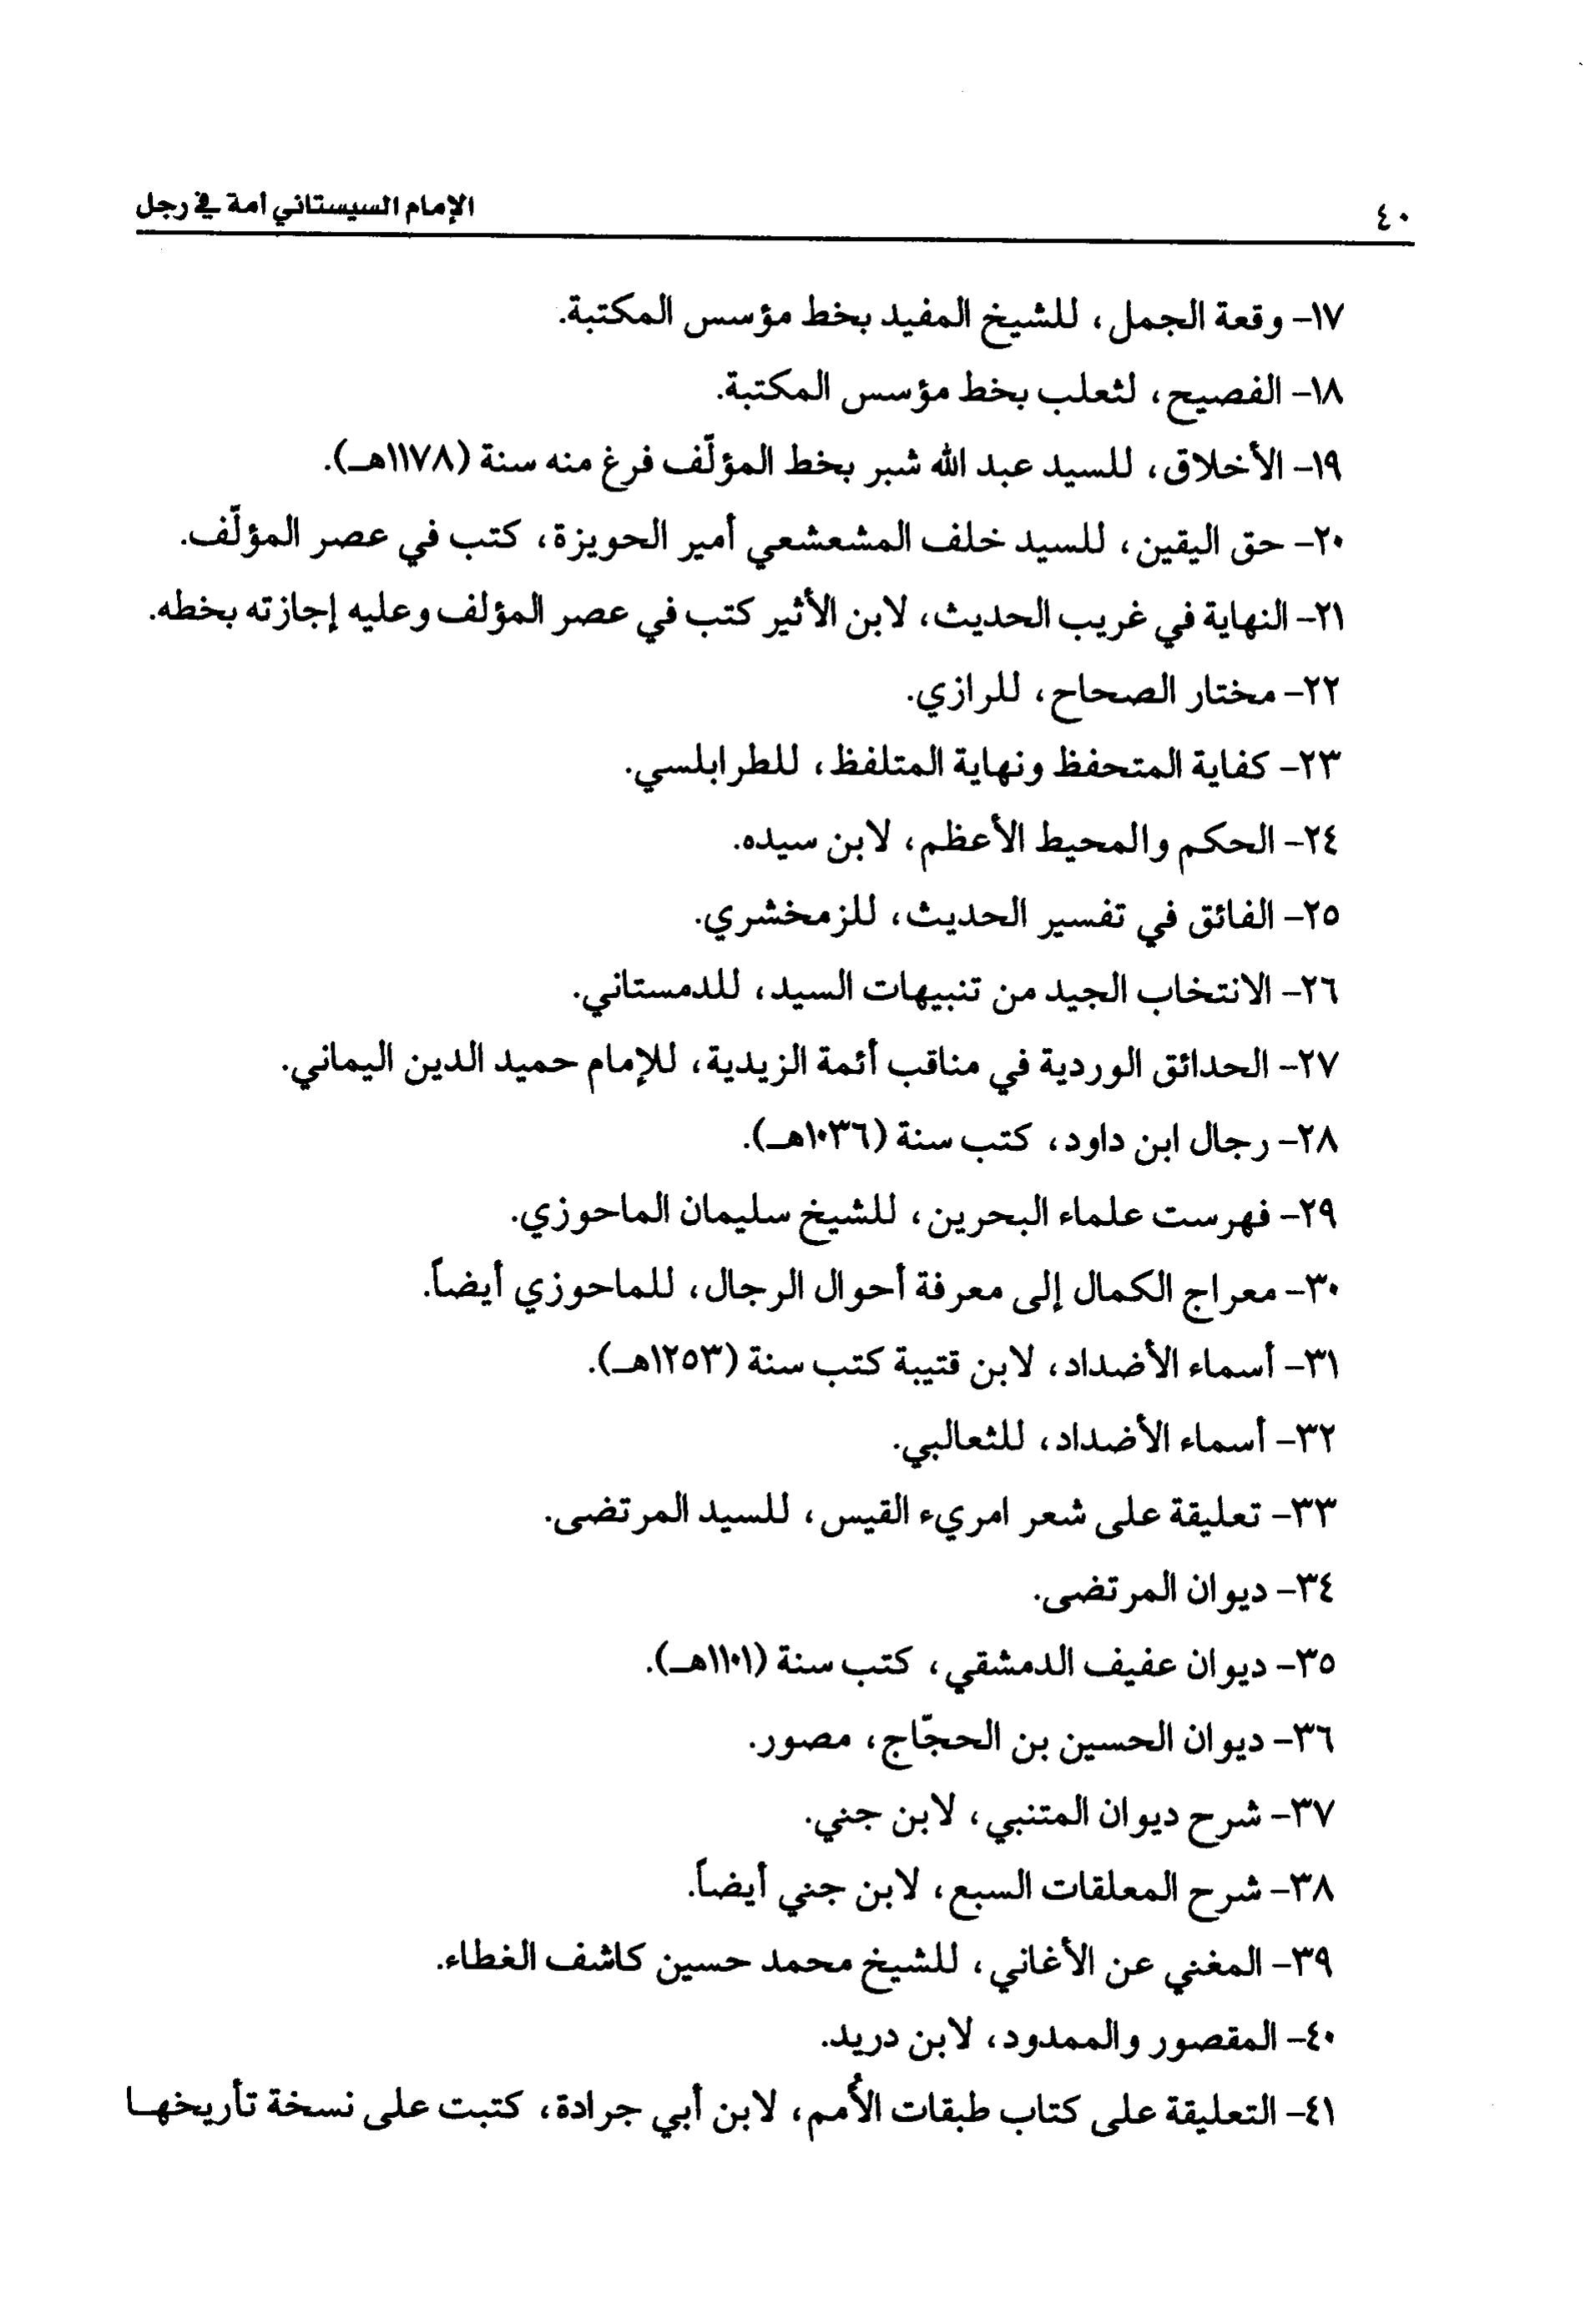 ٤٠ الإمام السيستاني أمة في رجل
١٧- وقعة الجمل، للشيخ المفيد بخط مؤسس المكتبة.
١٨- الفصيح، لثعلب بخط مؤسس المكتبة.
١٩- الأخلاق، للسيد عبد الله شبر بخط المؤلّف فرغ منه سنة (١١٧٨هـ).
٢٠- حق اليقين، للسيد خلف المشعشعي أمير الحويزة، كتب في عصر المؤلّف.
٢١- النهاية في غريب الحديث، لابن الأثير كتب في عصر المؤلف وعليه إجازته بخطه.
٢٢- مختار الصحاح، للرازي.
٢٣- كفاية المتحفظ ونهاية المتلفظ، للطرابلسي.
٢٤- الحكم والمحيط الأعظم، لابن سيده.
٢٥- الفائق في تفسير الحديث، للزمخشري.
٢٦- الانتخاب الجيد من تنبيهات السيد، للدمستاني.
٢٧- الحدائق الوردية في مناقب أئمة الزيدية، للإمام حميد الدين اليماني.
٢٨- رجال ابن داود، كتب سنة (١٠٣٦هـ).
٢٩- فهرست علماء البحرين، للشيخ سليمان الماحوزي.
٣٠- معراج الكمال إلى معرفة أحوال الرجال، للماحوزي أيضاً.
٣١- أسماء الأضداد، لابن قتيبة كتب سنة (١٢٥٣هـ).
٣٢- أسماء الأضداد، للثعالبي.
٣٣- تعليقة على شعر امريء القيس، للسيد المرتضى.
٣٤- ديوان المرتضى.
٣٥- ديوان عفيف الدمشقي، كتب سنة (١١٠١هـ).
٣٦- ديوان الحسين بن الحجّاج، مصور.
٣٧- شرح ديوان المتنبي، لابن جني.
٣٨- شرح المعلقات السبع، لابن جني أيضاً.
٣٩- المغني عن الأغاني، للشيخ محمد حسين كاشف الغطاء.
٤٠- المقصور والممدود، لابن دريد.
٤١- التعليقة على كتاب طبقات الأُمم، لابن أبي جرادة، كتبت على نسخة تأريخهـا